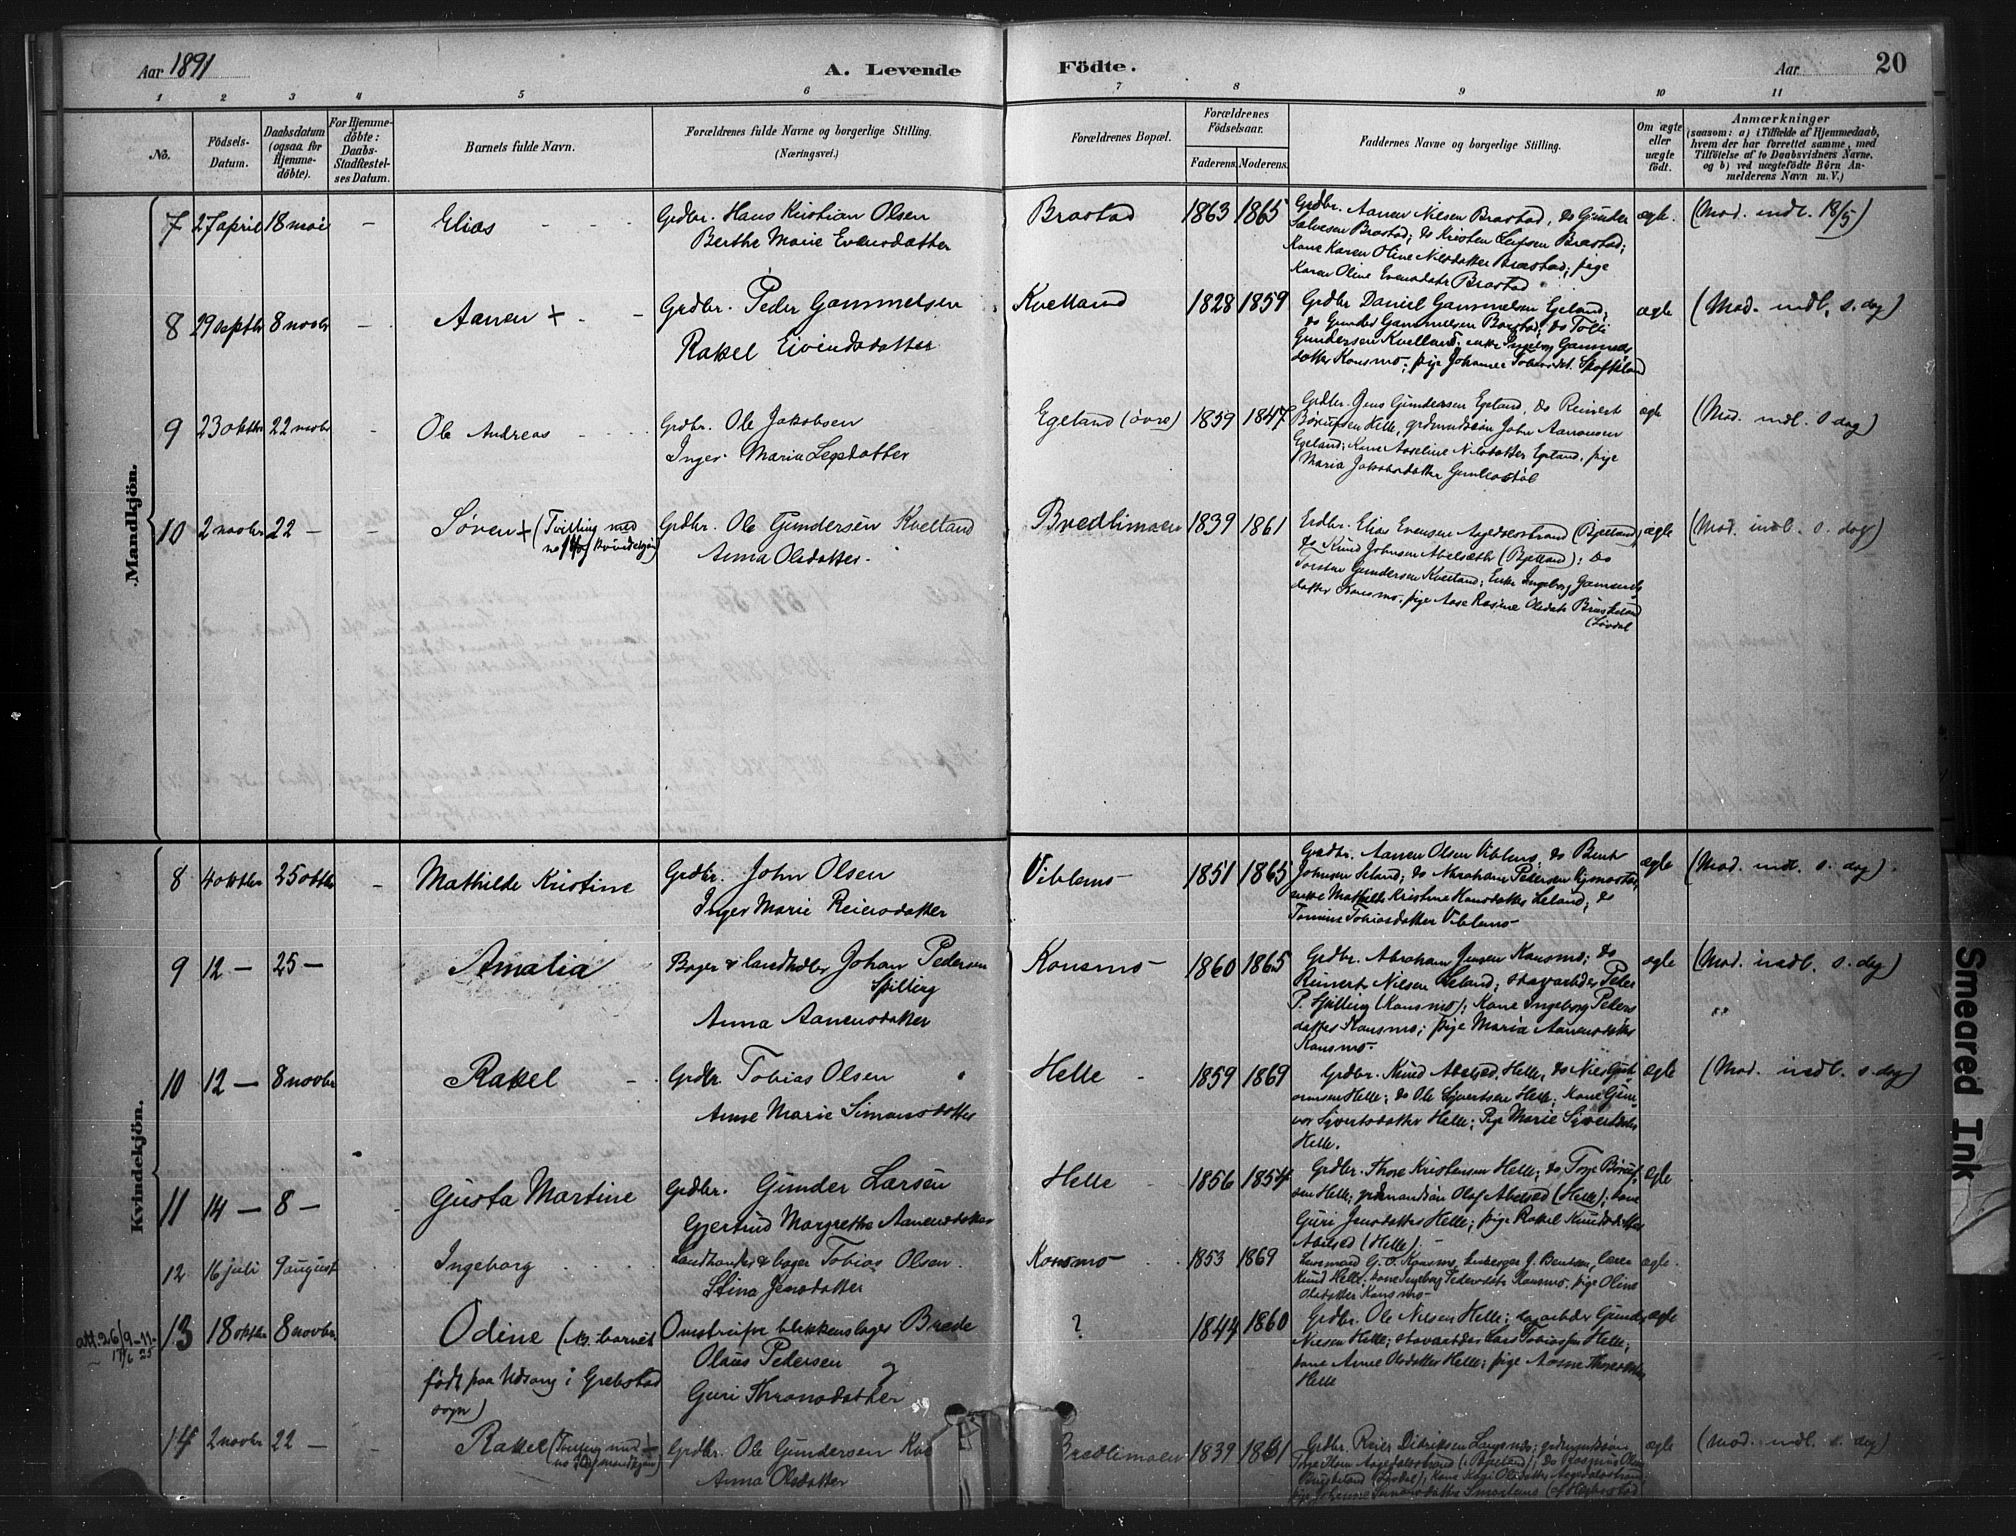 Aar 1891
A. Levende
Födte.
Aar
20
1 2 3 4 5 6 7 8 9 10 11
No.
Födsels-
Datum.
Daabsdatum
(ogsaa for
Hjemme-
döbte).
For Hjemme-
döbte:
Daabs-
Stadfæstel-
ses Datum.
Barnets fulde Navn.
Forældrenes fulde Navne og borgerlige Stilling.
(Næringsvei.)
Forældrenes Bopæl.
Forældrenes
Födselsaar.
Faderens. Moderens.
Faddernes Navne og borgerlige Stilling.
Om ægte
eller
uægte
födt.
Anmærkninger
(saasom: a) i Tilfælde af Hjemmedaab,
hvem der har forrettet samme, med
Tilföielse af to Daabsvidners Navne,
og b) ved uægtefödte Börn An-
melderens Navn m. V.)
Mandkjön.
7 27 april 18 mai - Elias - - -
Grdbr. Hans Kristian Olsen
Berthe Marie Evensdatter
Brastad 1863 1865
Grdbr. Aanen Nilsen Brastad, do Gunder
Salvesen Brastad; do Kristen Leifsen Brastad;
Kone Karen Oline Nilsdatter Brastad; pige
Karen Oline Evensdatr Brastad
ægte. (Mod. indl. 18/5)
8 29 septbr 8 novbr - Aanen + - -
Grdbr. Peder Gammelsen
Rakel Eivindsdatter
Kvelland 1828 1859
Grdbr Daniel Gammelsen Egeland;
do Gunder Gammelsen Brastad; do Tolli
Gundersen Kvelland; enke Ingeborg Gammels
datter Konsmo; pige Johanne Tobiasdt.
ægte (Mod. indl. s. dag)
9 23 oktbr 22 novbr - Ole Andreas - - -
Grdbr. Ole Jakobsen
Inger Maria
Egeland (övre) 1859 1847
Grdbr. Jens Gundersen Egeland, do Reinert
Helle, grdmandssön John Aanonsen
Egeland; Kone Aaseline Nilsdatter Egeland, pige
Maria Jakobsdatter
ægte (Mod. indl. s dag)
10 2 novbr 22 - Søren + (Tvilling med
no 14 kvindekjön)
Grdbr. Ole Gundersen Kvelland
Anna Olsdatter.
Bredlimoen 1839 1861
Grdbr. Elias Evensen Aagedalsstrand (Bjelland)
do Knud Johnsen Abelsæth (Bjelland); do
Torstein Gundersen Kvelland; Enke Ingeborg Gammels
datter Konsmo, pige Aase Rasine Olsdatr
ægte (Mod. indl. s. dag)
Kvindekjön.
8 4 oktbr 25 oktbr - Mathilde Kristine
Grdbr. John Olsen
Inger Marie Reiersdatter
Viblemo 1851 1865
Grdbr. Aanen Olsen Viblemo; do Bent
Johnsen Seland; do Abraham Pedersen
enke Mathilde Kristine Hansdatter Seland; do
Tomine Tobiasdatter Viblemo
ægte (Mod. indl. s. dag).
9 12 - 25 - Amalia
Bager & landhdler Johan Pedersen
Spilling
Anna Aanensdatter
Konsmo 1860 1865
Grdbr. Abraham Jensen Konsmo; do
Reinert Nilsen Seland; Peder
P. Spilling (Konsmo); Kone Ingeborg Peders
datter Konsmo; pige Maria Aanensdatter
Konsmo
ægte (Mod. indl. s. dag)
10 12 - 8 novbr Rakel -
Grdbr. Tobias Olsen
Anne Marie Simonsdatter
Helle - 1859 1869
Grdbr. Knud Abelsed. Helle, do Nils Gut-
ormsen Helle; do Ole Sjvertsen Helle; Kone Gun-
vor Sjvertsdatter Helle; Pige Marie
Helle.
ægte (Mod. indl. s. dag)
11 14 - 8 - Gusta Martine
Grdbr. Gunder Larsen
Gjertrud Margrethe Aanensdatter
Helle 1856 1854
Grdbr. Thore Kristensen Helle; do Torje
sen Helle; grdmandssön Olaf Abelsed (Helle); kone
Guri Jensdatter Helle; pige Rakel Knudsdatter
Abelsed (Helle)
ægte
12 16 juli 9 august Ingeborg
Landhandler & bager Tobias Olsen
Stina Jensdatter
Konsmo 1853 1869
G. O. Konsmo, J. Bentsen,
Knud Helle, kone Ingeborg Pedersdatr Konsmo, pige Oline
Olsdatter Konsmo
ægte.
att. 26/9-11-
17/6 25
13 18 oktbr 8 novbr Odine (NB. barnet
født paa Udsang i Grebstad
sogn)
Omstreifer blikkenslager Brede
Olaus Pedersen og
Guri Thronsdatter
? 1844 1860
Grdbr. Ole Nilsen Helle; dagarbdr Gunder
Nilsen Helle; Lars Tobiassen Helle;
kone Anne Olsdatter Helle; pige Anne
Helle
ægte
14 2 novbr 22 - Rakel (Tvilling med
no 10 mandkjön)
Grdbr. Ole Gundersen
Anna Olsdatter
Bredlimoen 1839 1861
Grdbr. Reier Didriksen grdmandssön
ægte (Mod. indl. s. dag)
Smeared Ink